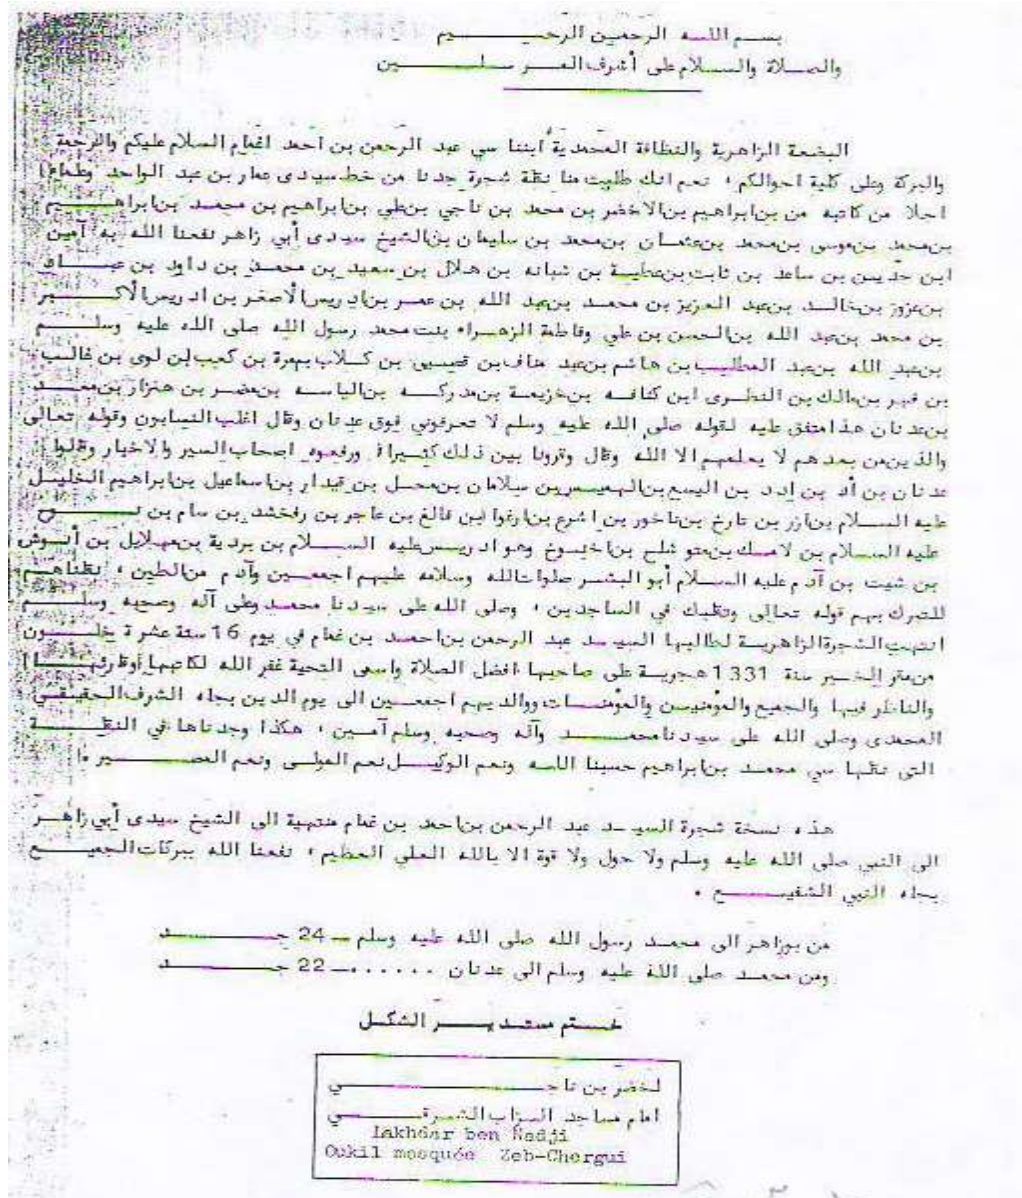 بسم اللـه الرحمين الرحيـــم
والصلاة والسـلام على أشرف المـر سلـــين
البضعة الزاهرية والنظافة المحمدية أبننا سي عبد الرحمن بن أحمد لغمام السلام عليكم والرحمة
والبركة وعلى كلية احوالكم ، نعم انك طلبت منا نقلة شجرة جدنا من خط سيدى عمار بن عبد الواحد
احلا من كاتبه من بن ابراهيم بن الاخضر بن محمد بن ناجي بن علي بن ابراهيم بن محمد بن ابراهـــيم
بن محمد بن موسى بن محمد بن عثمان بن محمد بن سليمان بن الشيخ سيدى أبي زاهر نفعنا الله به آمين
ابن حديس بن ساعد بن ثابت بن عطيـة بن شبانه بن هلال بن سعيد بن محمد بن داود بن عبـــاد
بن عزوز بن خالد بن عبد العزيز بن محمد بن عبد الله بن عمر بن ادريس الأصغر بن ادريس الأكـــبر
بن محمد بن عبد الله بن الحسن بن علي وفاطمة الزهراء بنت محمد رسول الله صلى الله عليه وسلـــم
بن عبد الله بن عبد المطلب بن هاشم بن عبد مناف بن قصيي بن كـلاب بن مرة بن كعب بن لوى بن غالب
بن فهر بن مالك بن النظرى ابن كنانـه بن خزيمـة بن مدركـه بن الياسـه بن مضر بن هنزار بن معـــد
بن عدنان هذا متفق عليه لقوله صلى الله عليه وسلم لا تعرفوني فوق عدنان وقال اغلب النسابون وقوله تعالى
والذين من بعدهم لا يعلمهم الا الله وقال وقرونا بين ذلك كثيرا ورفعوه اصحاب السير والاخبار وقالوا
عدنان بن أد بن ادد بن اليسع بن الهميسر بن سلامان بن محمل بن قيدار بن اسماعيل بن ابراهيم الخليـل
عليه السلام بن ازر بن تارخ بن ناخور بن اشرع بن ارغوا بن فالغ بن عاجر بن رفخشد بن سام بن نــــوح
عليه السلام بن لامـك بن متو شلخ بن اخنـوخ وهو ادريس عليه السـلام بن بردية بن مهلايل بن أنـوش
بن شيت بن آدم عليه السلام أبو البشر صلوات الله وسلامه عليهم اجمعين وآدم من الطين ، نقلناهـم
للتبرك بهم قوله تعالى وتقلبك في الساجدين ، وصلى الله على سيدنا محمد وعلى آله وصحبه وسلـــم
انتهت الشجرة الزاهريـة لطالبها السيـد عبد الرحمن بن احمد بن غمام في يوم 16 ستة عشرة خلــون
من صفر الخير سنة 1331 هجريـة على صاحبها افضل الصلاة واسمى التحية غفر الله لكاتبها أوقارئهـــا
والناظر فيها والجميع والمؤمنين والمؤمنـات ووالديهم اجمعـين الى يوم الدين بجاه الشرف الحقيقـي
المحمدى وصلى الله على سيدنا محمـــد وآله وصحبه وسلم آمـين ، هكذا وجدناها في النقلـــة
التى نقلها سي محمد بن ابراهيم حسبنا اللـه ونعم الوكيـل نعم المولـى ونعم النصـــير ،
هذه نسخة شجرة السيـد عبد الرحمن بن احمد بن غمام منتهية الى الشيخ سيدى أبي زاهـر
الى النبي صلى الله عليه وسلم ولا حول ولا قوة الا بالله العلي العظيم ، نفعنا الله ببركات الجميـــع
بجاه النبي الشفيـــع .
من بوزاهر الى محمـد رسول الله صلى الله عليه وسلم ــ 24 جــــد
ومن محمـد صلى الله عليه وسلم الى عدنان ...... ــ 22 جــــد
خـتم مستـديـر الشكـل
لخضر بن ناجـــــي
امام مساجد الـزاب الشـرقـــي
Lakhdar ben Nadji
Oukil mosquée Zeb-Chergui